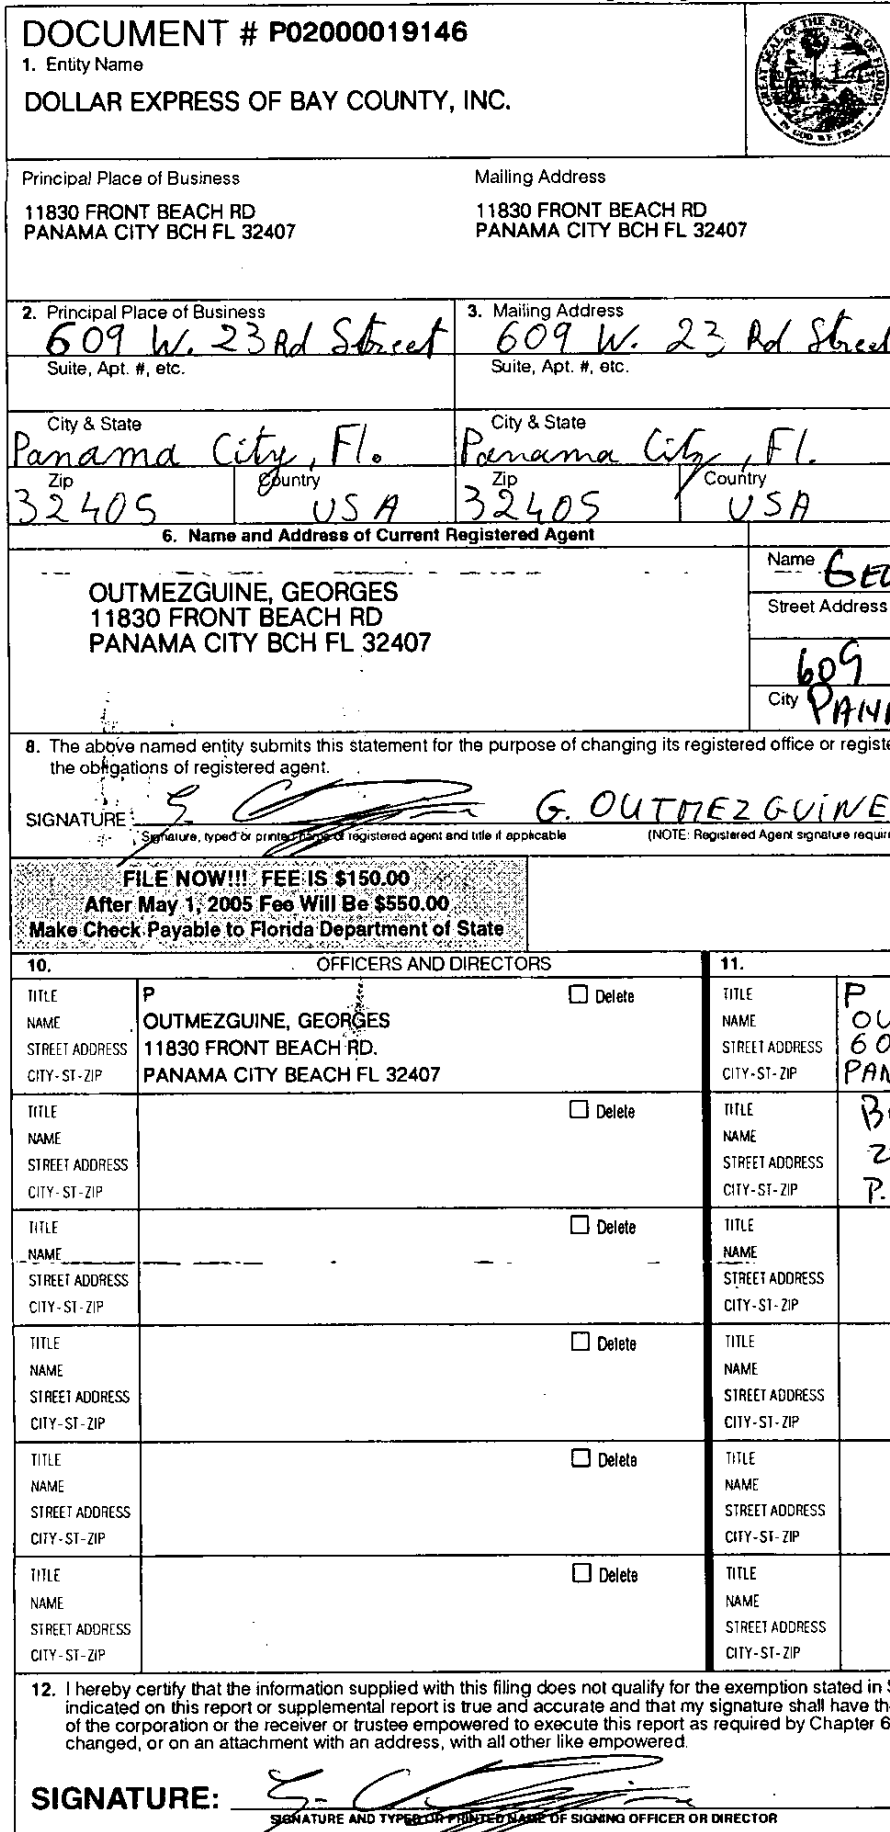 DOCUMENT # P02000019146
1. Entity Name
DOLLAR EXPRESS OF BAY COUNTY, INC.
GREAT SEAL OF THE STATE OF FLORIDA
IN GOD WE TRUST
Principal Place of Business
Mailing Address
11830 FRONT BEACH RD
PANAMA CITY BCH FL 32407
11830 FRONT BEACH RD
PANAMA CITY BCH FL 32407
2. Principal Place of Business
3. Mailing Address
609 W. 23 Rd Street
609 W. 23 Rd Street
Suite, Apt. #, etc.
Suite, Apt. #, etc.
City & State
City & State
Panama City, Fl.
Panama City, Fl.
Zip
Country
Zip
Country
32405
USA
32405
USA
6. Name and Address of Current Registered Agent
OUTMEZGUINE, GEORGES
11830 FRONT BEACH RD
PANAMA CITY BCH FL 32407
Name GEO
Street Address
609
City PANA
8. The above named entity submits this statement for the purpose of changing its registered office or registe
the obligations of registered agent.
SIGNATURE G. OUTMEZGUINE
Signature, typed or printed name of registered agent and title if applicable
(NOTE: Registered Agent signature requir
FILE NOW!!! FEE IS $150.00
After May 1, 2005 Fee Will Be $550.00
Make Check Payable to Florida Department of State
10. OFFICERS AND DIRECTORS
11.
TITLE P Delete
NAME OUTMEZGUINE, GEORGES
STREET ADDRESS 11830 FRONT BEACH RD.
CITY-ST-ZIP PANAMA CITY BEACH FL 32407
TITLE P
NAME OU
STREET ADDRESS 60
CITY-ST-ZIP PAN
TITLE Delete
NAME
STREET ADDRESS
CITY-ST-ZIP
TITLE
NAME
STREET ADDRESS
CITY-ST-ZIP P.
TITLE Delete
NAME
STREET ADDRESS
CITY-ST-ZIP
TITLE
NAME
STREET ADDRESS
CITY-ST-ZIP
TITLE Delete
NAME
STREET ADDRESS
CITY-ST-ZIP
TITLE
NAME
STREET ADDRESS
CITY-ST-ZIP
TITLE Delete
NAME
STREET ADDRESS
CITY-ST-ZIP
TITLE
NAME
STREET ADDRESS
CITY-ST-ZIP
TITLE Delete
NAME
STREET ADDRESS
CITY-ST-ZIP
TITLE
NAME
STREET ADDRESS
CITY-ST-ZIP
12. I hereby certify that the information supplied with this filing does not qualify for the exemption stated in S
indicated on this report or supplemental report is true and accurate and that my signature shall have th
of the corporation or the receiver or trustee empowered to execute this report as required by Chapter 6
changed, or on an attachment with an address, with all other like empowered.
SIGNATURE:
SIGNATURE AND TYPED OR PRINTED NAME OF SIGNING OFFICER OR DIRECTOR